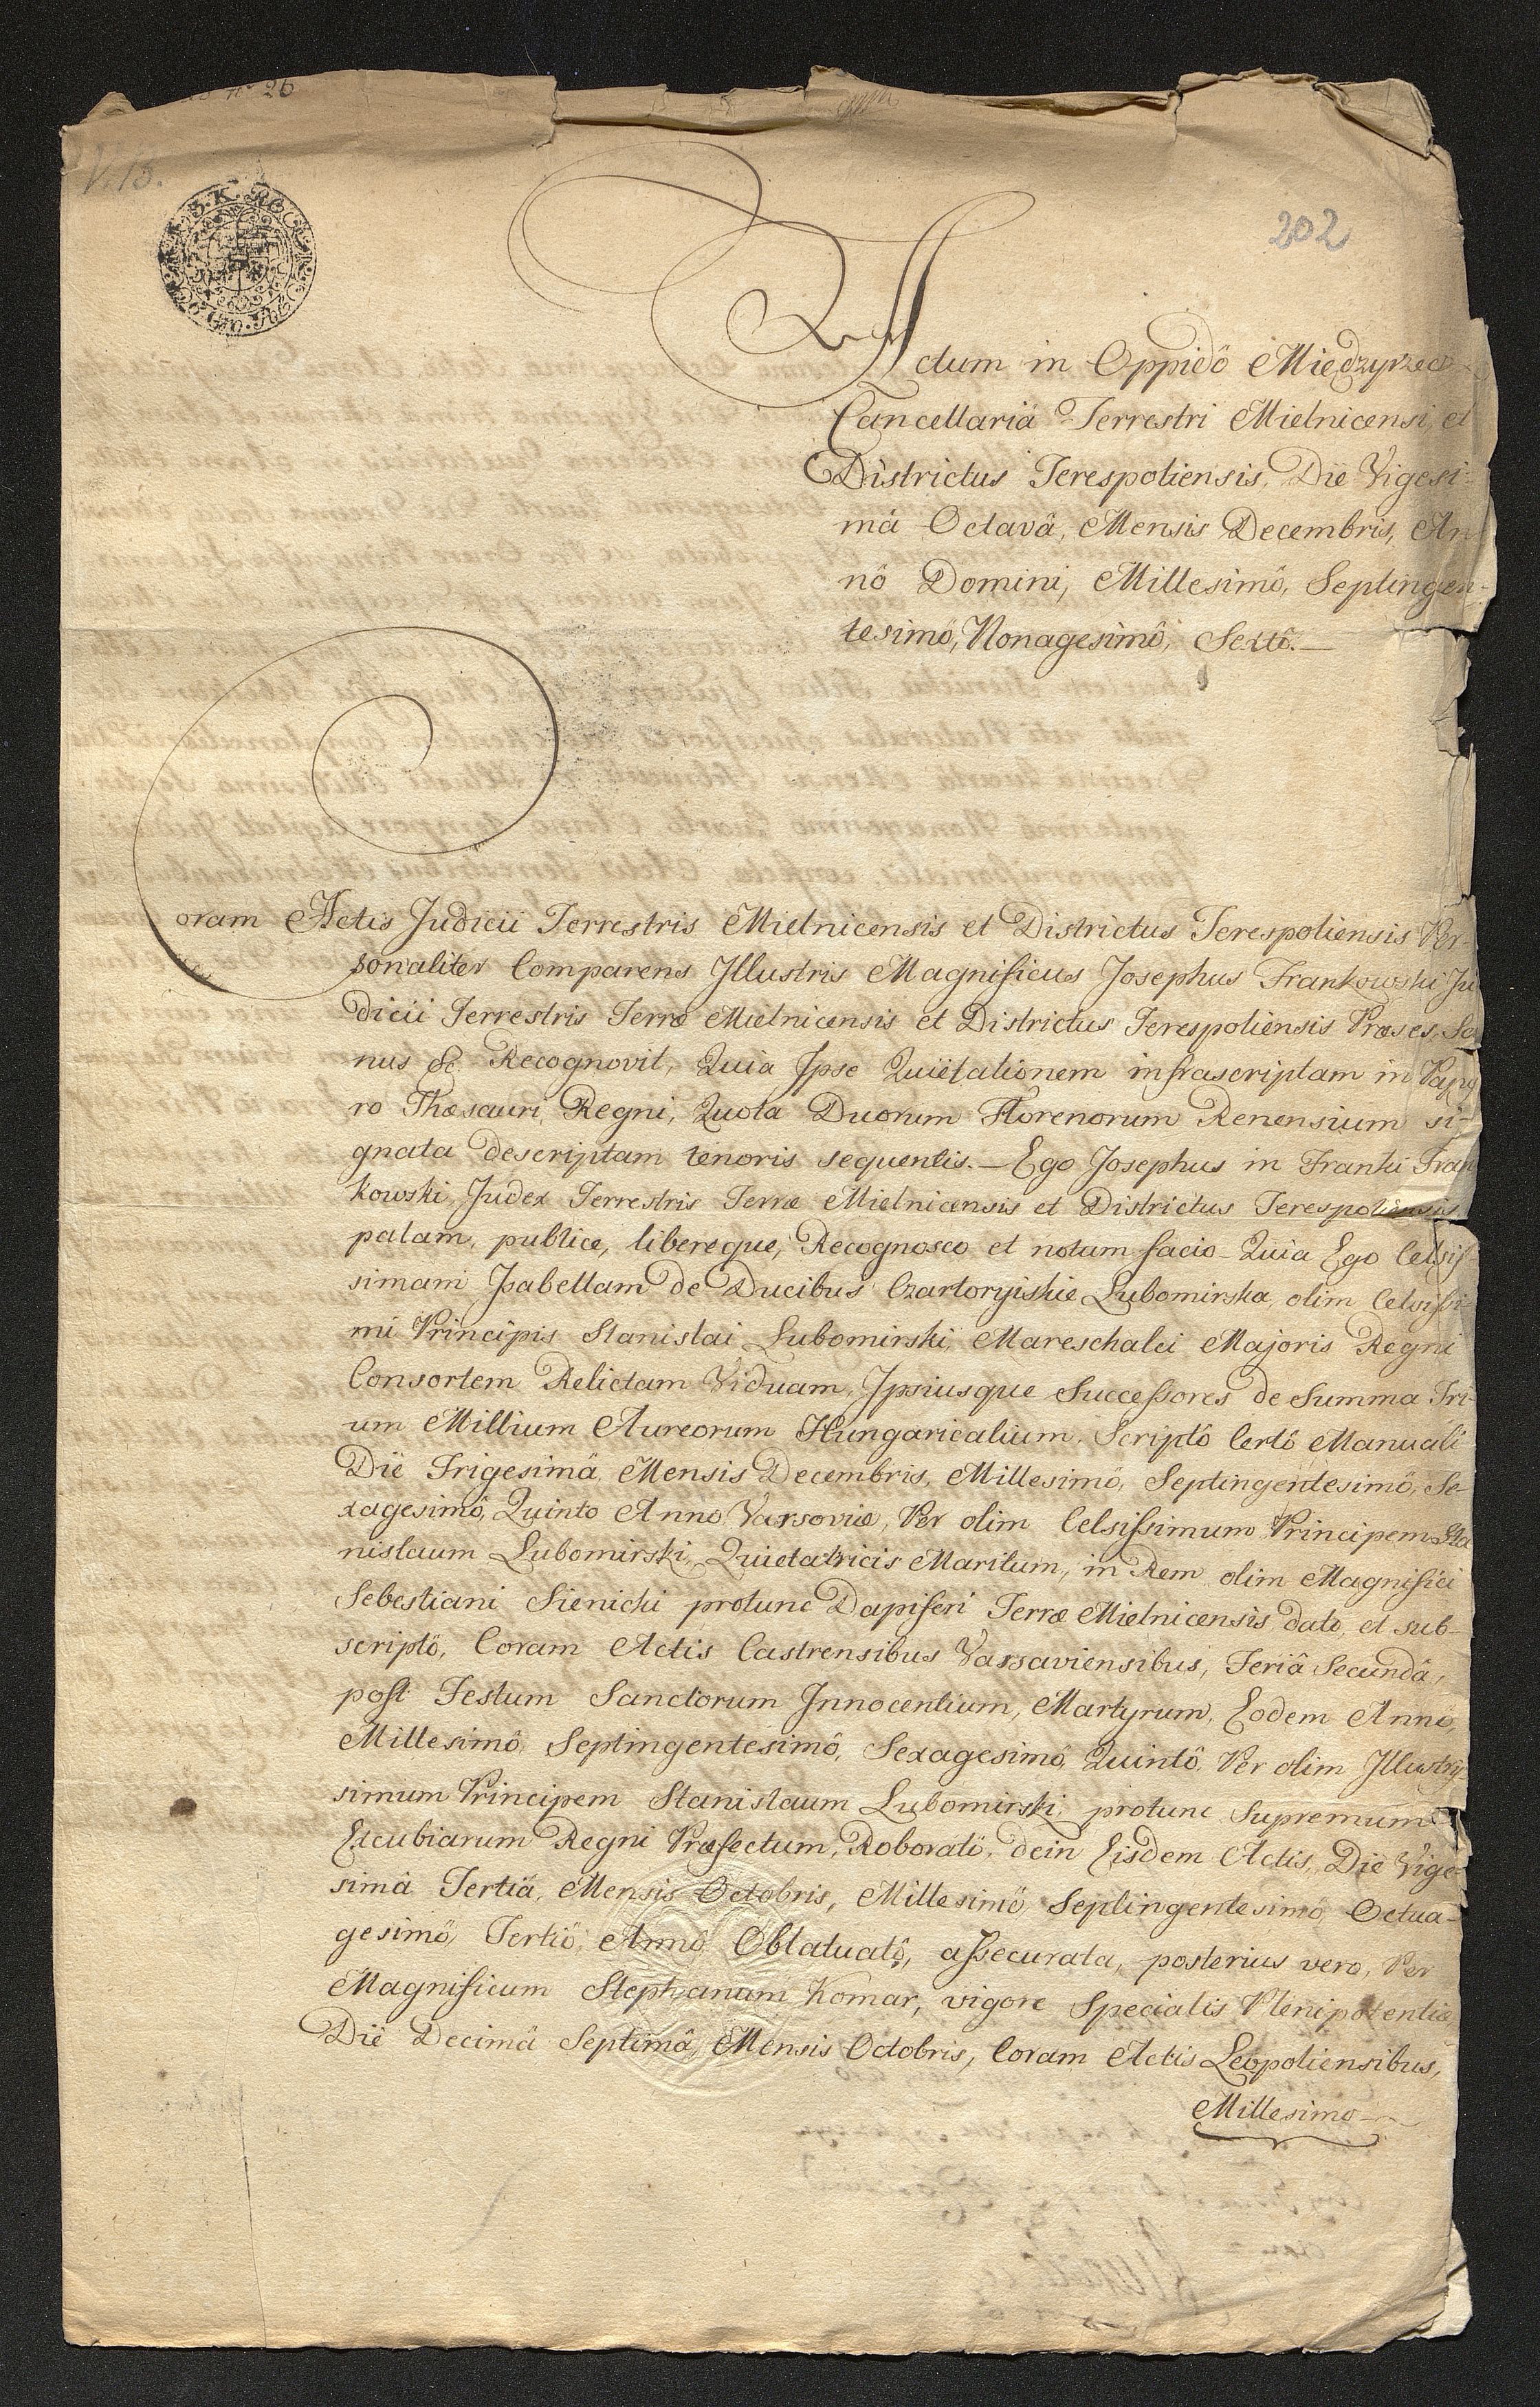 Nº 26
V. 13.
202
Actum in Oppidô Miedzyrzecz
Cancellariâ Terrestri Mielnicensi, et
Districtus Terespoliensis, Die Vigesi-
mâ Octavâ, Mensis Decembris, An
nô Domini, Millesimô, Septingen-
tesimô, Nonagesimô, Sextô.—
Coram Actis Judicii Terrestris Mielnicensis et Districtus Terespoliensis Per-
sonaliter Comparens Jllustris Magnificus Josephus Frankowski Ju
dicii Terrestris Terræ Mielnicensis et Districtus Terespoliensis Præses, Sa
nus &c Recognovit, Quia Jpse Quiëtationem infrascriptam in Papy
ro Thæsauri Regni, Quota Duorum Florenorum Renensium si-
gnata descriptam tenoris sequentis.— Ego Josephus in Franki Fran
kowski Judex Terrestris Terræ Mielnicensis et Districtus Terespoliensis
palam, publice, libereque, Recognosco et notum facio Quia Ego Celsis
simam Jsabellam de Ducibus Czartoryiskie Lubomirska, olim Celsissi-
mi Principis Stanislai Lubomirski, Mareschalci Majoris Regni
Consortem Relictam Viduam, Jpsiusque Successores de Summa Tri-
um Millium Aureorum Hungaricalium, Scriptô Certô Manuali
Die Trigesimâ, Mensis Decembris, Millesimô, Septingentesimô, Se-
xagesimô, Quinto Anno Varsoviæ, Per olim Celsissimum Principem Sta
nislaum Lubomirski, Quietatricis Maritum, in Rem olim Magnifici
Sebestiani Sienicki protunc Dapiferi Terræ Mielnicensis, dato, et sub-
scriptô, Coram Actis Castrensibus Varsaviensibus, Feriâ Secundâ,
post Festum Sanctorum Jnnocentium, Martyrum, Eodem Annô,
Millesimô, Septingentesimô, Sexagesimô, Quintô, Per olim Jllustris-
simum Principem Stanislaum Lubomirski, protunc Supremum
Excubiarum Regni Præfectum, Roboratô, dein Eisdem Actis, Die Vige-
simâ Tertiâ, Mensis Octobris, Millesimô, Septingentesimô, Octua-
gesimô, Tertiô, Annô Oblatuatô, assecurata, posterius vero, Per
Magnificum Stephanum Komar, vigore Specialis Plenipotentiæ
Die Decimâ Septimâ, Mensis Octobris, Coram Actis Leopoliensibus,
Millesimo